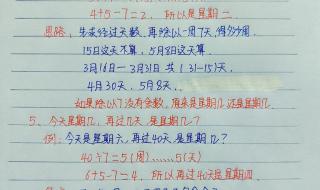 4+5-7=2, 所以是星期二
思路: 先求经过天数, 再除以一周7天, 得多少周.
15日这天不算, 5月8日这天算.
3月16日—3月31日共(31-15)天.
4月30天, 5月8天.
如果除以7没有余数, 原来是星期几还是星期几
5、今天是星期几, 再过几天, 是星期几?
例: 今天是星期六, 再过40天是星期几?
40÷7=5(周)……5(天)
6+5-7=4, 所以再过40天是星期四.